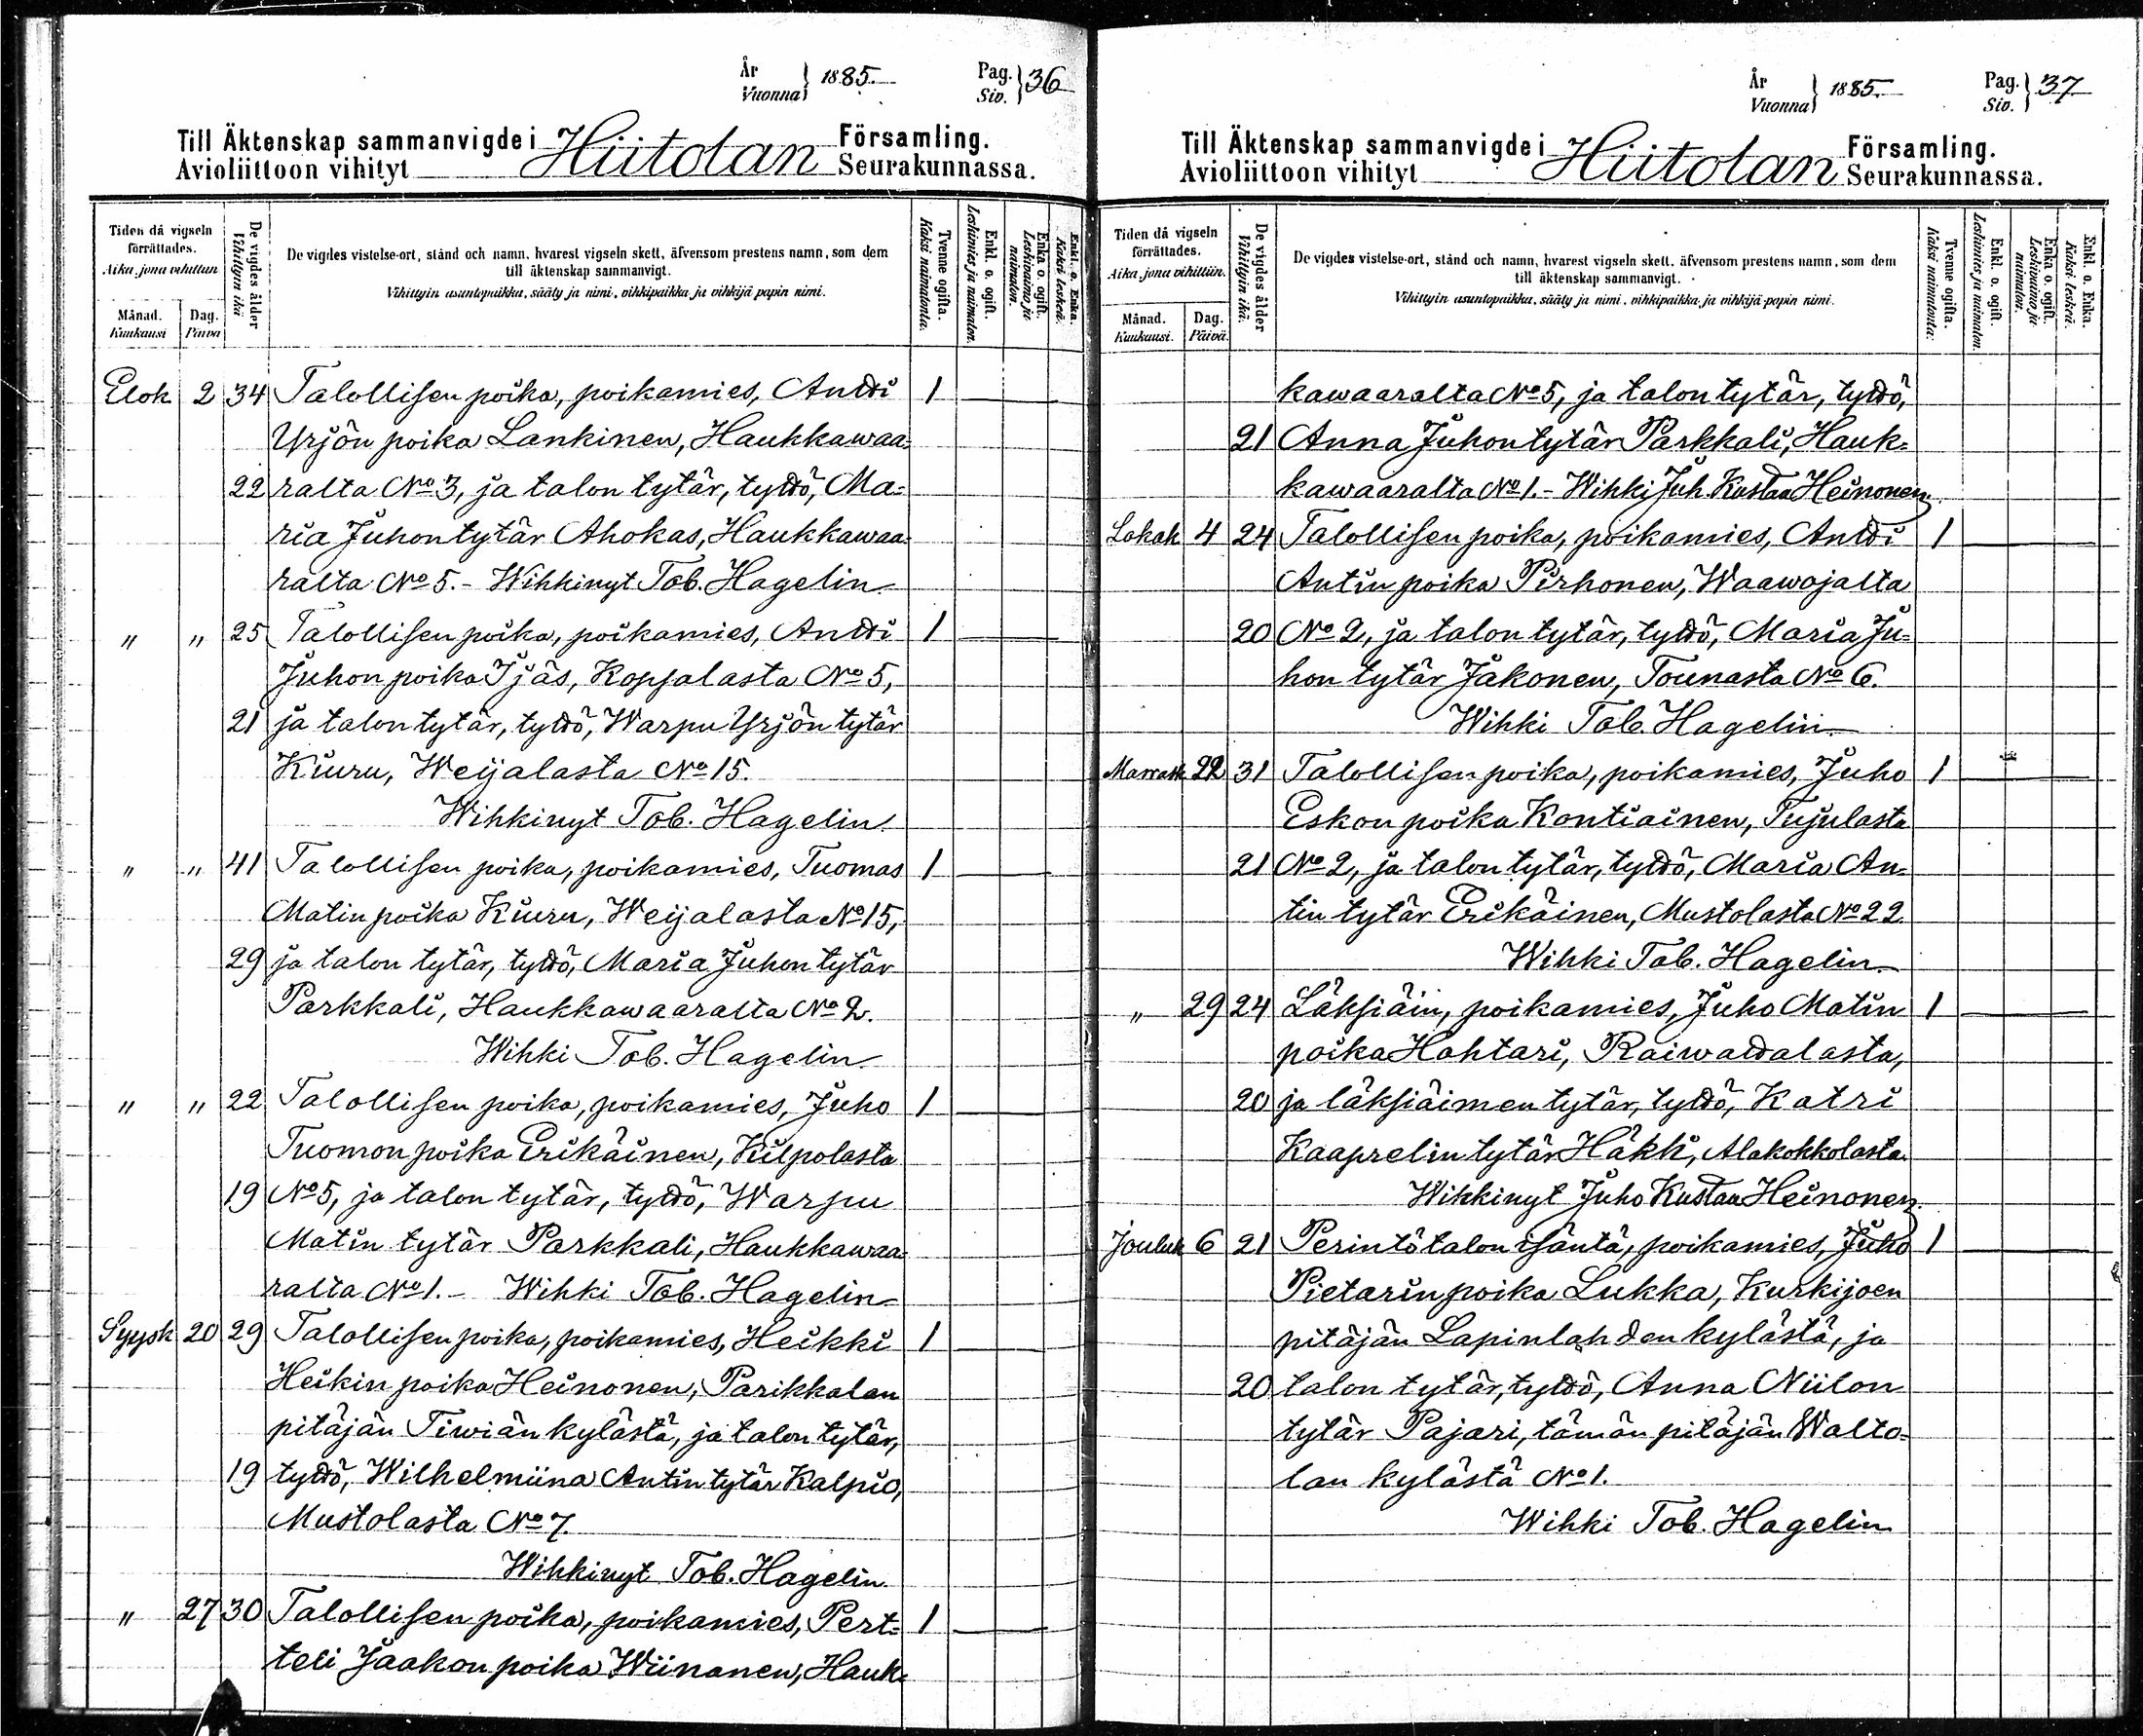 År
Vuonna } 1885.
Pag.
Siv. } 36
Till Äktenskap sammanvigde i Hiitolan Församling.
Avioliittoon vihityt Seurakunnassa.
Tiden då vigseln förrättades.
Aika, jona vihittiin
Månad.
Kuukausi
Dag.
Päivä
De vigdes ålder
Vihittyin ikä
De vigdes vistelse-ort, stånd och namn, hvarest vigseln skett, äfvensom prestens namn, som dem
till äktenskap sammanvigt.
Vihittyin asuntopaikka, sääty ja nimi, vihkipaikka ja vihkijä papin nimi.
Tvenne ogifta.
Kaksi naimatonta.
Enkl. o. ogift.
Leskimies ja naimaton.
Enka o. ogift.
Leskivaimo ja naimaton.
Enkl. o. Enka.
Kaksi leskeä.
Elok 2 34 Talollisen poika, poikamies, Antti 1
Yrjön poika Lankinen, Haukkawaa-
22 ralta No 3, ja talon tytär, tyttö, Ma-
ria Juhon tytär Ahokas, Haukkawaa-
ralta No 5.- Wihkinyt Tob. Hagelin
" " 25 Talollisen poika, poikamies, Antti 1
Juhon poika Ijäs, Koppalasta No 5,
21 ja talon tytär, tyttö, Warpu Yrjön tytär
Kiuru, Weijalasta No 15.
Wihkinyt Tob. Hagelin.
" " 41 Talollisen poika, poikamies, Tuomas 1
Matin poika Kiuru, Weijalasta No 15,
29 ja talon tytär, tyttö, Maria Juhon tytär
Parkkali, Haukkawaaralta No 2.
Wihki Tob. Hagelin
" " 22 Talollisen poika, poikamies, Juho 1
Tuomon poika Erikäinen, Kilpolasta
19 No 5, ja talon tytär, tyttö, Warpu
Matin tytär Parkkali, Haukkawaa-
ralta No 1.- Wihki Tob. Hagelin
Syysk 20 29 Talollisen poika, poikamies, Heikki 1
Heikin poika Heinonen, Parikkalan
pitäjän Tiwiän kylästä, ja talon tytär,
19 tyttö, Wilhelmiina Antin tytär Kalpio,
Mustolasta No 7.
Wihkinyt Tob. Hagelin.
" 27 30 Talollisen poika, poikamies, Pert- 1
teli Jaakon poika Wiinanen, Hauk-
År
Vuonna } 1885.
Pag.
Siv. } 37
Till Äktenskap sammanvigde i Hiitolan Församling.
Avioliittoon vihityt Seurakunnassa.
Tiden då vigseln förrättades.
Aika, jona vihittiin.
Månad.
Kuukausi.
Dag.
Päivä.
De vigdes ålder
Vihittyin ikä.
De vigdes vistelse-ort, stånd och namn, hvarest vigseln skett, äfvensom prestens namn, som dem
till äktenskap sammanvigt.
Vihittyin asuntopaikka, sääty ja nimi, vihkipaikka, ja vihkijä papin nimi.
Tvenne ogifta.
Kaksi naimatonta.
Enkl. o. ogift.
Leskimies ja naimaton.
Enka o. ogift.
Leskivaimo ja naimaton.
Enkl. o. Enka.
Kaksi leskeä.
kawaaralta No 5, ja talon tytär, tyttö,
21 Anna Juhon tytär Parkkali, Hauk-
kawaaralta No 1.- Wihki Juh. Kustaa Heinonen.
Lokak 4 24 Talollisen poika, poikamies, Antti 1
Antin poika Pirhonen, Waawojalta
20 No 2, ja talon tytär, tyttö, Maria Ju-
hon tytär Jäkonen, Tounasta No 6.
Wihki Tob. Hagelin.
Marrask 22 31 Talollisen poika, poikamies, Juho 1
Eskon poika Kontiainen, Tujulasta
21 No 2, ja talon tytär, tyttö, Maria An-
tin tytär Erikäinen, Mustolasta No 22.
Wihki Tob. Hagelin.
" 29 24 Läksiäin, poikamies, Juho Matin 1
poika Hohtari, Raiwattalasta,
20 ja läksiäimen tytär, tyttö, Katri
Kaaprelin tytär Häkli, Alakokkolasta.
Wihkinyt Juho Kustaa Heinonen.
Jouluk 6 21 Perintötalon isäntä, poikamies, Juho 1
Pietarin poika Lukka, Kurkijoen
pitäjän Lapinlahden kylästä, ja
20 talon tytär, tyttö, Anna Niilon
tytär Pajari, tämän pitäjän Walto-
lan kylästä No 1.
Wihki Tob. Hagelin